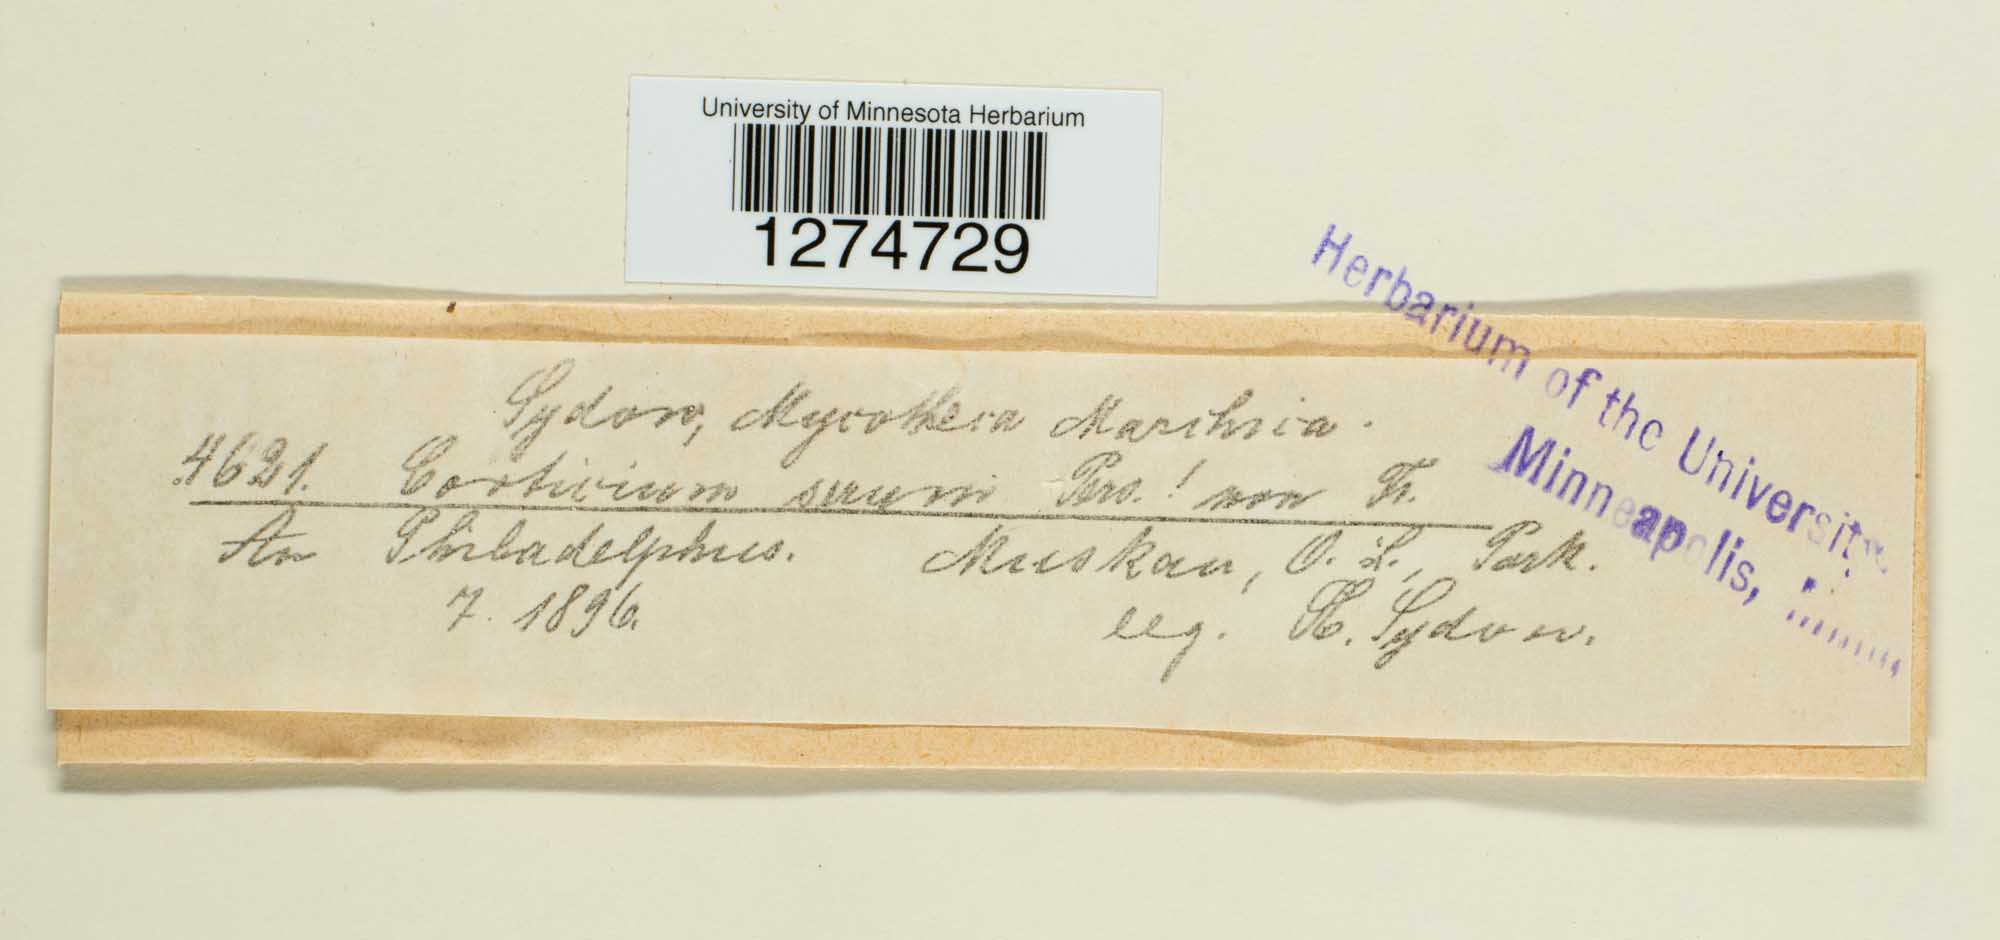 University of Minnesota Herbarium
1274729
Herbarium of the University
Minneapolis,
Sydow, Mycotheca Marchica.
4621. Corticium serum Pers.! non Fr.
An Philadelphus. Muskau, O. L., Park.
7. 1896. leg. H. Sydow.